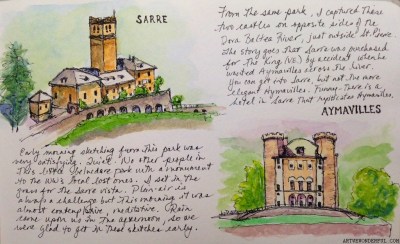 SARRE
From the same park, I captured these
two castles on opposite sides of the
Dora Baltea River, just outside St. Pierre.
The story goes that Sarre was purchased
for the King (V.E.) by accident when he
wanted Aymavilles across the river.
You can get into Sarre, but not the more
elegant Aymavilles. Funny - there is a
hotel in Sarre that
AYMAVILLES
Early morning sketching from this park was
very satisfying. Quiet. No other people in
this little park with a monument
to the WWII local lost ones. I sat in the
grass for the Sarre vista. Plein-air is
always a challenge but this morning it was
almost contemplative, meditative. Rain
came upon us in the afternoon, so we
were glad to get in these sketches early.
ARTISWONDERFUL.COM